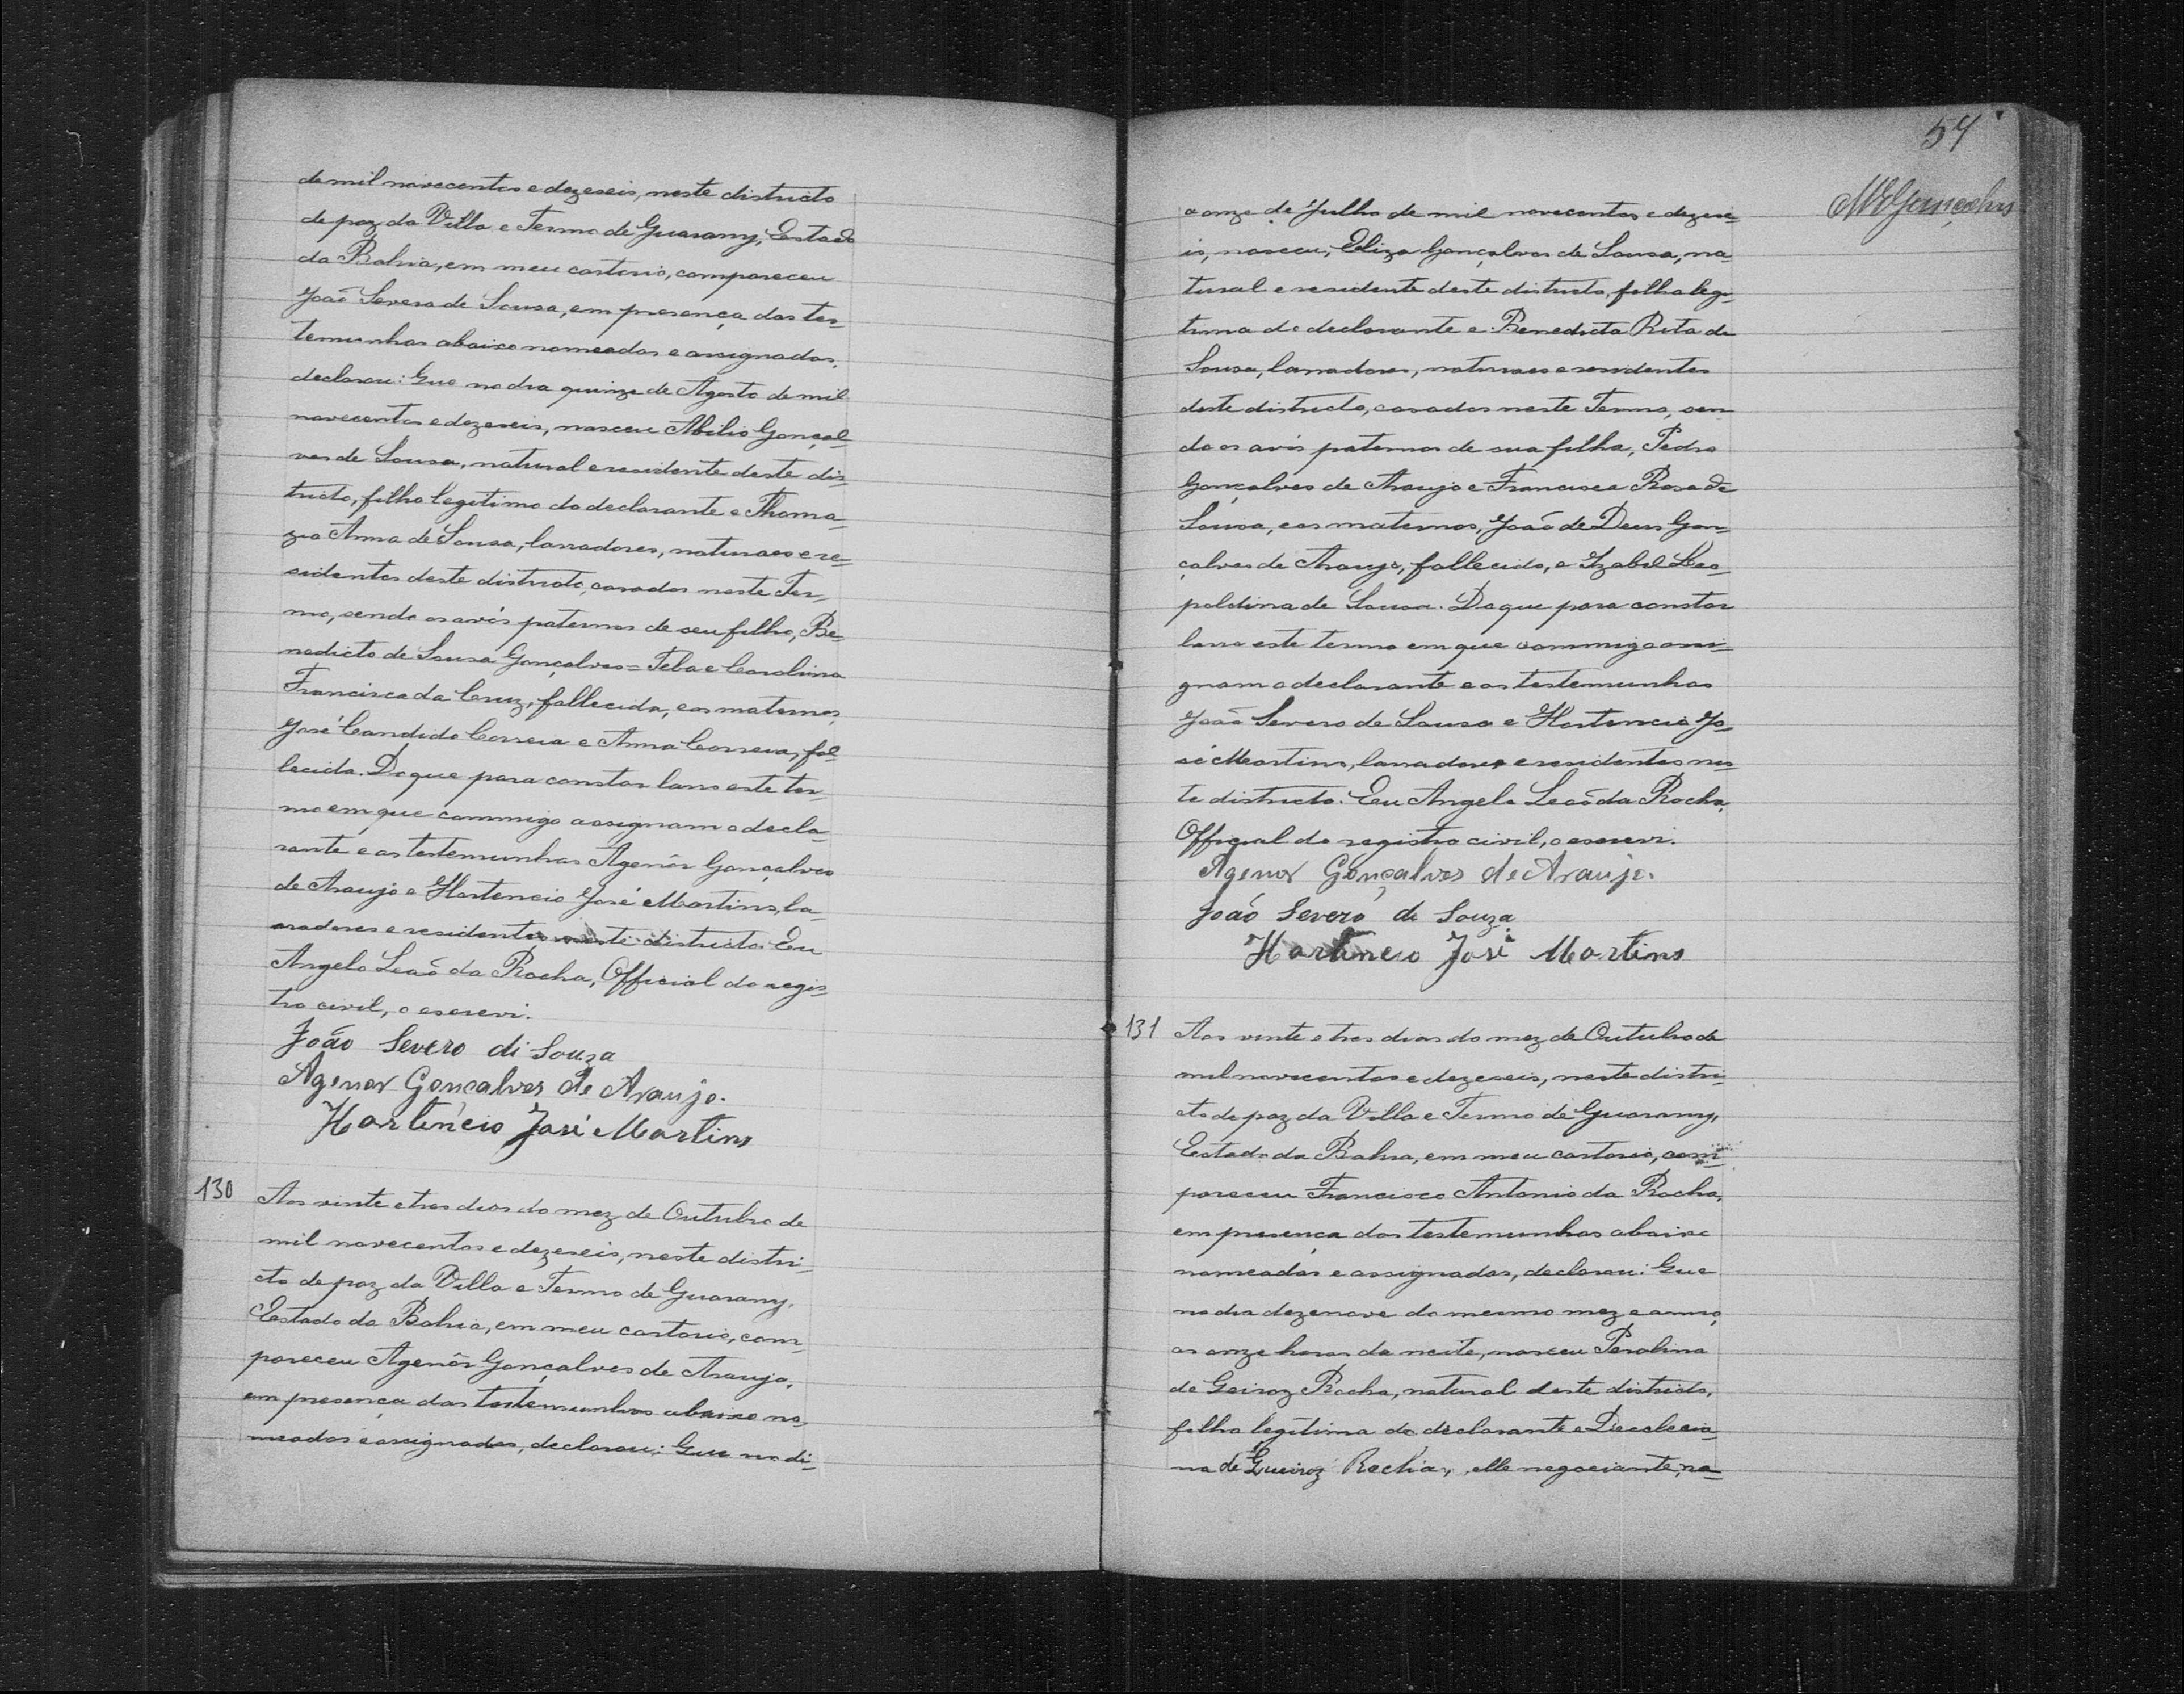 de mil novecentos e dezeseis, neste districto
de paz da Villa e Termo de Guarany, Estado
da Bahia, em meu cartorio, compareceu
João Severo de Sousa, em presença das tes-
temunhas abaixo nomeadas e assignadas,
declarou: Que no dia quinze de Agosto de mil
novecentos e dezeseis, nasceu Abilio Gonçal-
ves de Sousa, natural e residente deste dis-
tricto, filho legitimo do declarante e Thoma-
zia Anna de Sousa, lavradores, naturaes e re-
sidentes deste districto, casados neste Ter-
mo, sendo os avós paternos de seu filho, Be-
nedicto de Sousa Gonçalves = Teba e Carolina
Francisca da Cruz, fallecida, e os maternos,
José Candido Correia e Anna Correia, fal-
lecida. Do que para constar lavro este ter-
mo em que commigo assignam o decla-
rante e as testemunhas Agenôr Gonçalves
de Araujo e Hortencio José Martins, la-
vradores e residentes neste districto. Eu
Angelo Leaõ da Rocha, Official do regis-
tro civil, o escrevi.
João Severo di Souza
Agenor Gonçalves de Araujo.
Hortencio José Martins
130 Aos vinte e tres dias do mez de Outubro de
mil novecentos e dezeseis, neste distri-
cto de paz da Villa e Termo de Guarany,
Estado da Bahia, em meu cartorio, com-
pareceu Agenôr Gonçalves de Araujo,
em presença das testemunhas abaixo no-
meadas e assignadas, declarou: Que no di-
54
MVGonçalves
a onze de Julho de mil novecentos e dezese-
is, nasceu, Eliza Gonçalves de Sousa, na-
tural e residente deste districto, filha legi-
tima do declarante e Benedicta Rita de
Sousa, lavradores, naturaes e residentes
deste districto, casados neste Termo, sen-
do os avós paternos de sua filha, Pedro
Gonçalves de Araujo e Francisca Rosa de
Sousa, e os maternos, João de Deus Gon-
çalves de Araujo, fallecido, e Izabel Leo-
poldina de Sousa. Do que para constar
lavro este termo em que commigo assi-
gnam o declarante e as testemunhas
João Severo de Sousa e Hortencio Jo-
sé Martins, lavradores e residentes nes-
te districto. Eu Angelo Leaõ da Rocha,
Official do registro civil, o escrevi.
Agenor Gonçalves de Araujo.
João Severo de Souza
Hortencio José Martins
131 Aos vinte e tres dias do mez de Outubro de
mil novecentos e dezeseis, neste distri-
cto de paz da Villa e Termo de Guarany,
Estado da Bahia, em meu cartorio, com-
pareceu Francisco Antonio da Rocha,
em presença das testemunhas abaixo
nomeadas e assignadas, declarou: Que
no dia dezenove do mesmo mez e anno,
as onze horas da noite, nasceu Perolina
de Geiroz Rocha, natural deste districto,
filha legitima do declarante e Deoclecia-
na de Queiroz Rocha, elle negociante, na-